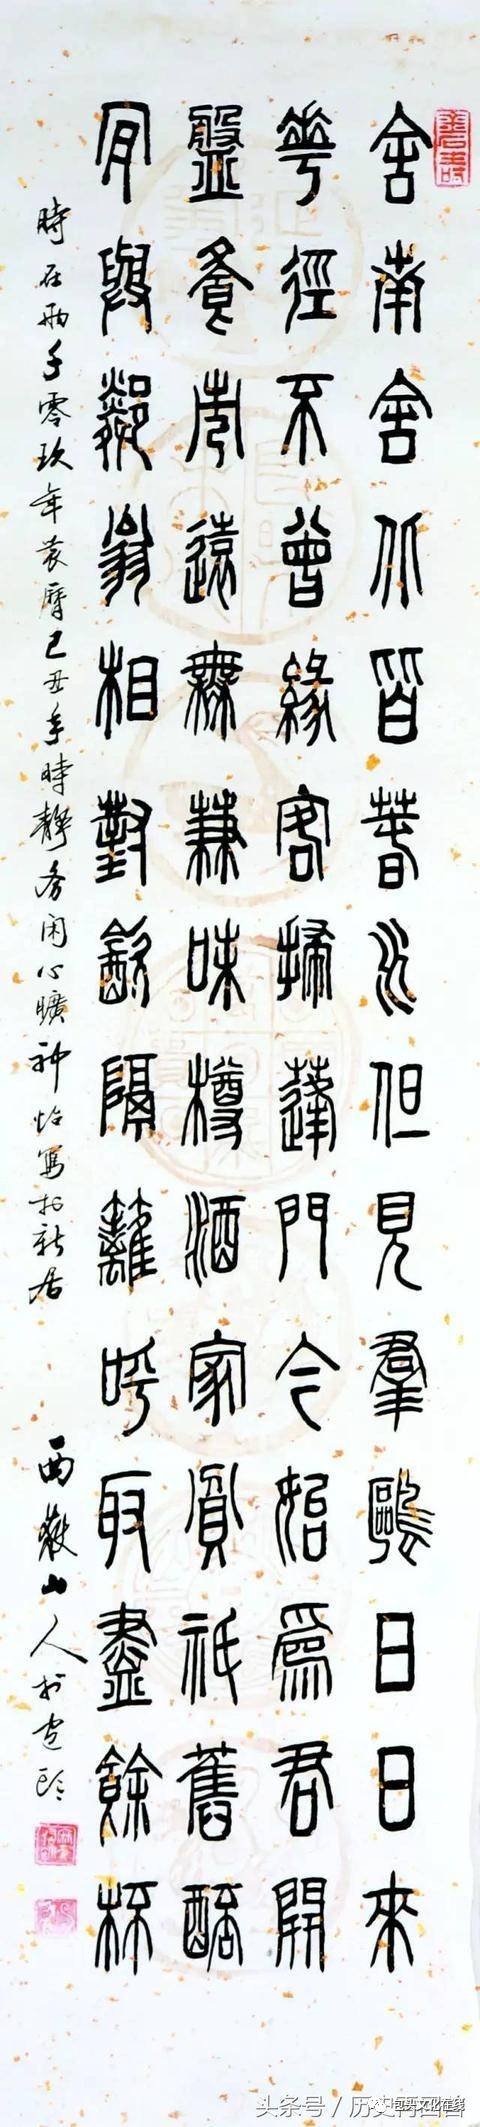 舍南舍北皆春水但見羣鷗日日來
華徑不曾緣客掃蓬門今始爲君開
盤飧市遠無兼味樽酒家貧祇舊醅
肯與鄰翁相對飲隔籬呼取盡餘杯
時在兩千零玖年農曆己丑年時靜务闲心曠神怡寫於新居
西嶽山人於包頭
头条号 / 历史再回首
包头文化在线